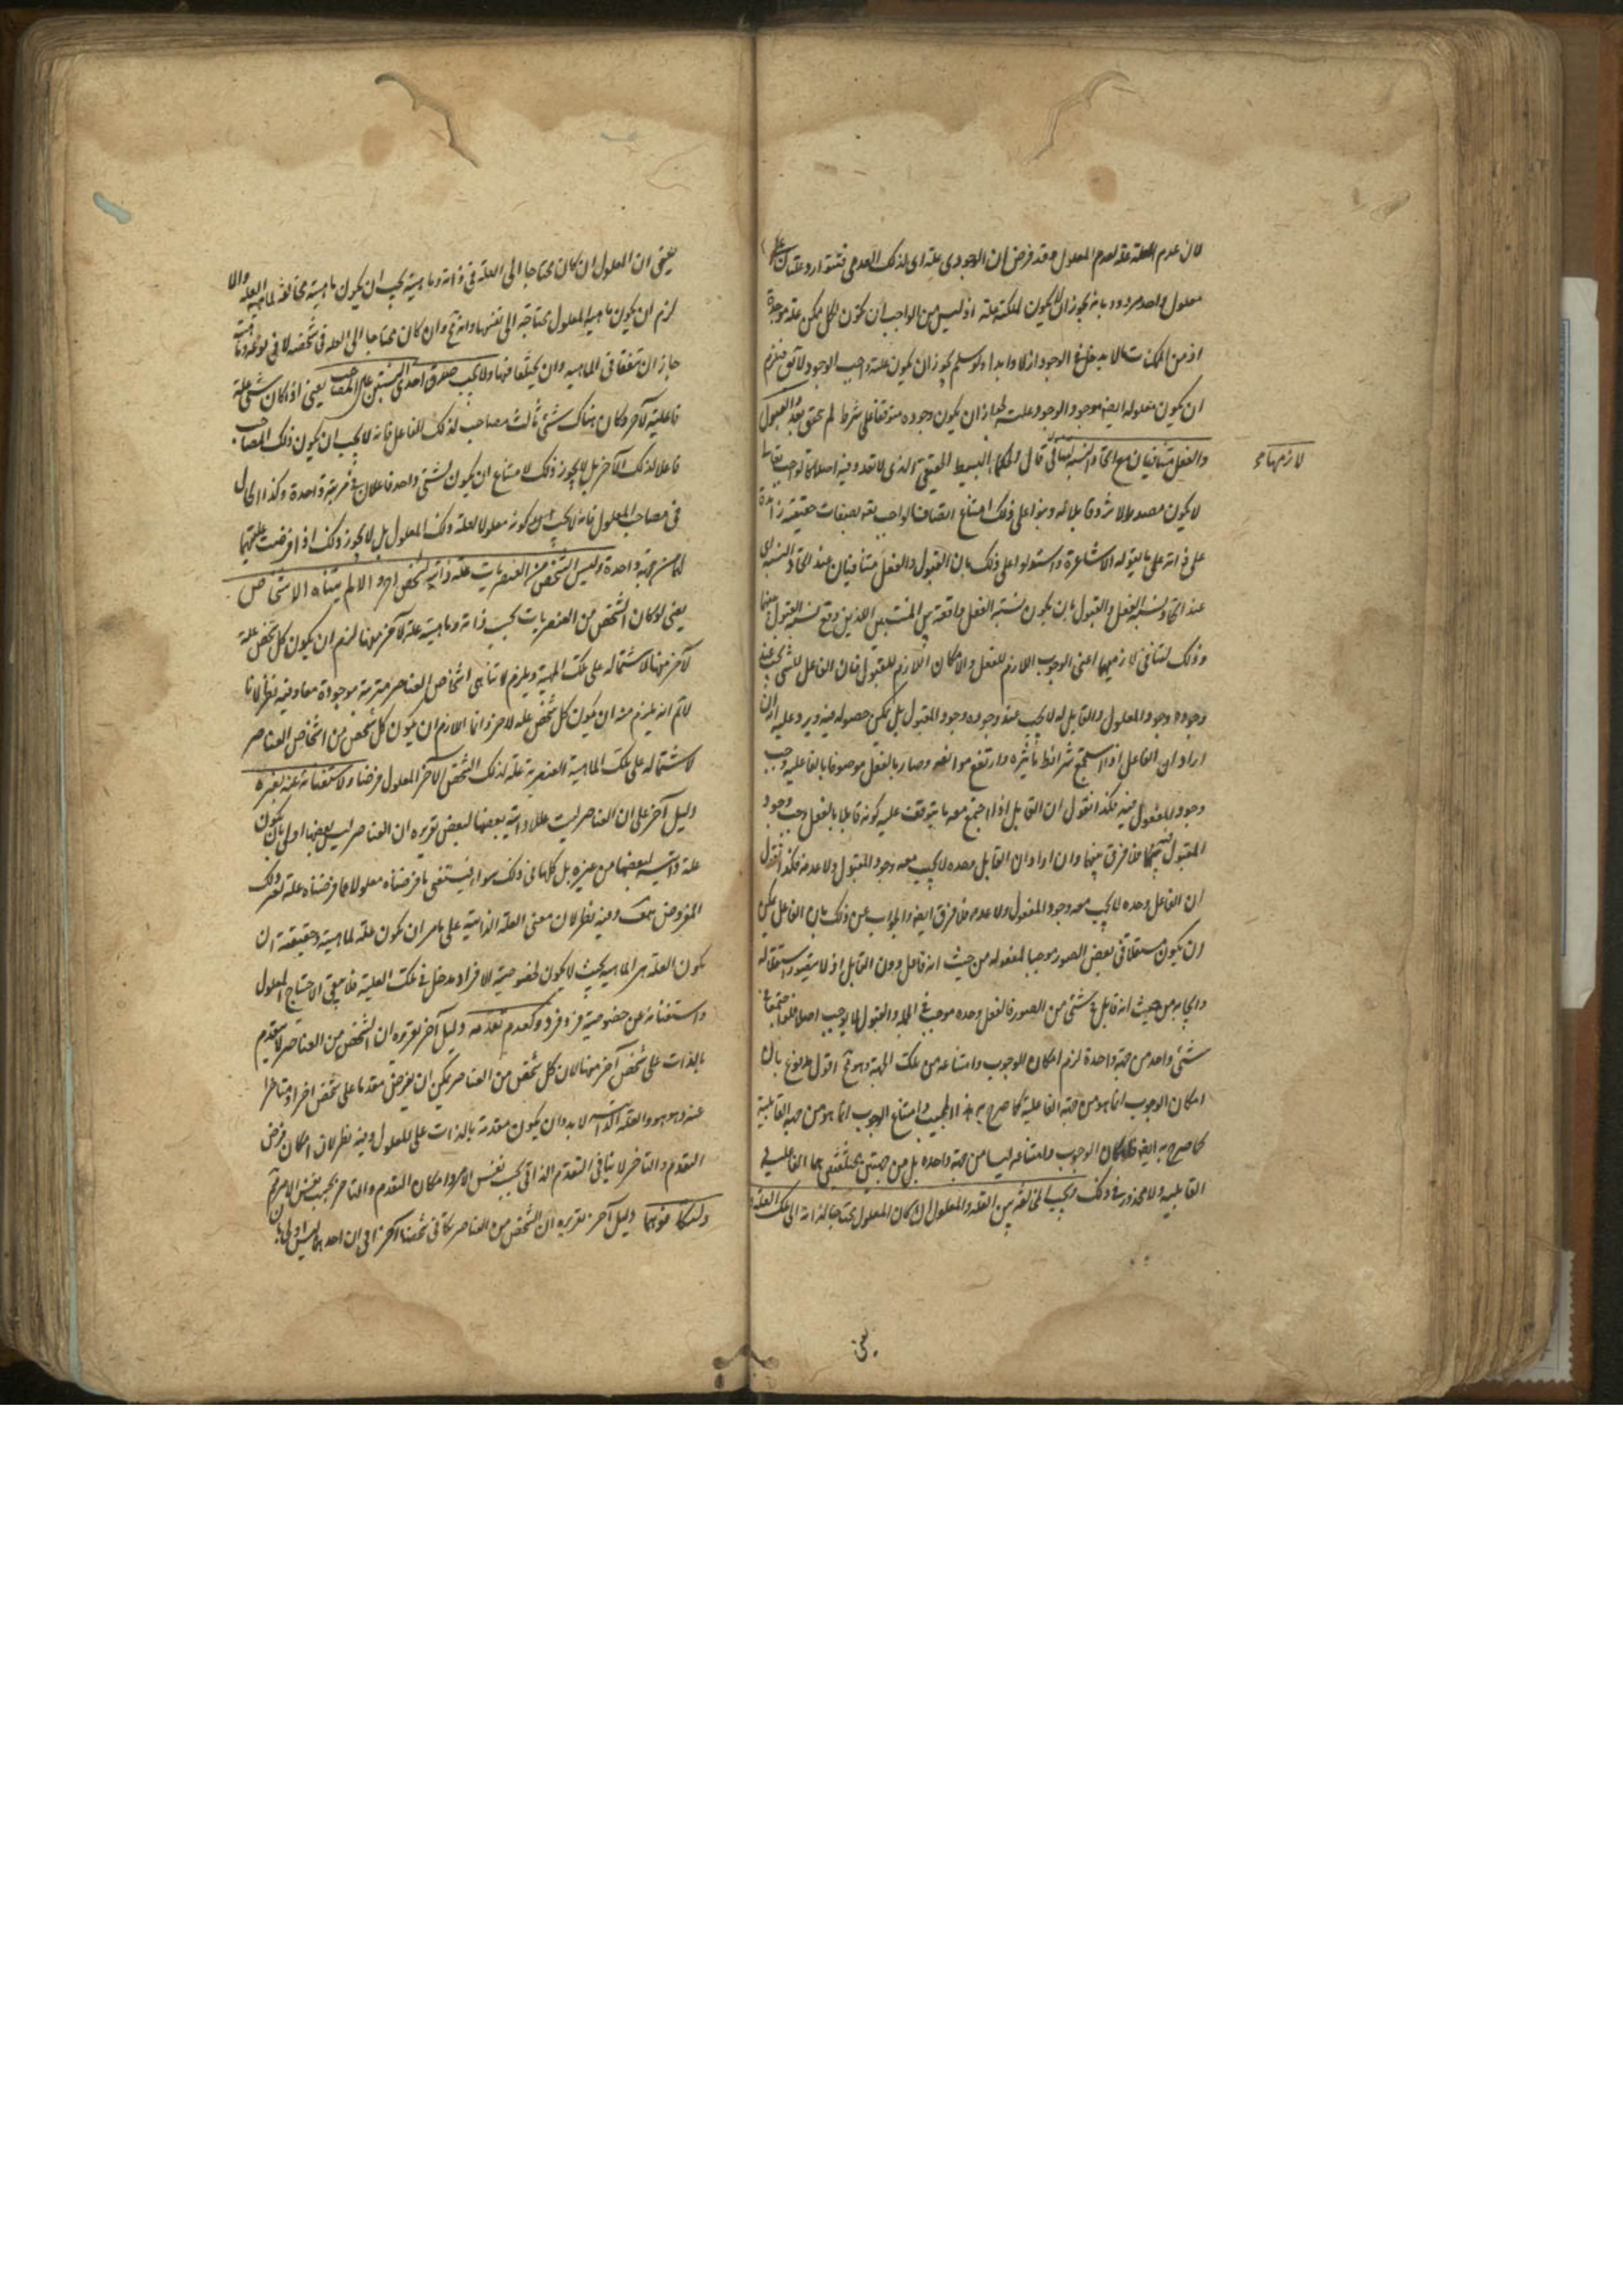 لان عدم العلة علة لعدم المعلول وقد فرض ان الوجودى علة اى لذلك العدمى فتتوارد علتان على
معلول واحد مردود بانه يجوز ان لا يكون لملكته علة اذ ليس من الواجب ان تكون لكل ممكن علة موجودة
اذ من الممكنات ما لا يدخل فى الوجود ازلا وابدا ولو سلم يجوز ان يكون علته واجب الوجود لا يق فيلزم
ان يكون معلوله ايضا موجود الوجود علته لجواز ان يكون وجوده متوقفا على شرط لم يتحقق بعد والقبول
والفعل متنافيان مع اتحاد النسبة لتنافى
لازمهما
قال الحكماء البسيط الحقيقى الذى لا تعدد فيه اصلا كالواجب تعالى
لا يكون مصدرا لاثر وقابلا له وبنوا على ذلك امتناع اتصاف الواجب بصفات حقيقية زائدة
على ذاته على ما يقوله الاشاعرة واستدلوا على ذلك بان القبول والفعل متنافيان عند اتحاد النسبة اى
عند اتحاد نسبة الفعل والقبول بان يكون نسبة الفعل واقعة بين المنتسبين اللذين وقع نسبة القبول بينهما
وذلك لتنافى لازميهما اعنى الوجوب اللازم للفعل والامكان اللازم للقبول فان الفاعل للشئ يجب عند
وجوده وجود المعلول والقابل له لا يجب عند وجوده وجود المقبول بل يمكن حصوله فيه ويرد عليه انه ان
اراد ان الفاعل اذا استجمع شرائط تأثيره وارتفع موانعه وصار بالفعل موصوفا بالفاعلية وجب
وجود المفعول فيه فكذا نقول ان القابل اذا اجتمع معه ما يتوقف عليه كونه قابلا بالفعل وجب وجود
المقبول فيه فلا فرق بينهما وان اراد ان القابل وحده لا يجب معه وجود المقبول ولا عدمه فكذا نقول
ان الفاعل وحده لا يجب معه وجود المفعول ولا عدمه فلا فرق ايضا والجواب عن ذلك بان الفاعل يمكن
ان يكون مستقلا فى بعض الصور موجبا لمفعوله من حيث انه فاعل دون القابل اذ لا يتصور استقلاله
وايجابه من حيث انه قابل فى شئ من الصور فالفعل وحده موجب فى الجملة والقبول لا يوجب اصلا فلو اجتمعا فى
شئ واحد من جهة واحدة لزم امكان الوجوب وامتناعه من تلك الجهة وهو مح اقول مدفوع بان
امكان الوجوب انما هو من جهة الفاعلية كما صرح به هذا المجيب وامتناع الوجوب انما هو من جهة القابلية
كما صرح به ايضا فامكان الوجوب وامتناعه ليسا من جهة واحدة بل من جهتين مختلفتين هما الفاعلية و
القابلية ولا محذور فى ذلك ويجب المخالفة بين العلة والمعلول ان كان المعلول محتاجا لذاته الى تلك العلة
يعنى
يعنى ان المعلول ان كان محتاجا الى العلة فى ذاته وماهيته يجب ان يكون ماهيته مخالفة لماهية العلة والا
لزم ان يكون ماهية المعلول محتاجة الى نفسها وانه مح وان كان محتاجا الى العلة فى شخصه لا فى نوعه وماهيته
جاز ان يتفقا فى الماهية وان يختلفا فيها ولا يجب صدق احدى النسبتين على المصاحب يعنى اذا كان شئ علة
فاعلية لآخر وكان هناك شئ ثالث مصاحب لذلك الفاعل فانه لا يجب ان يكون ذلك المصاحب
فاعلا لذلك الآخر بل لا يجوز ذلك لامتناع ان يكون لشئ واحد فاعلان فى مرتبة واحدة وكذا الحال
فى مصاحب المعلول فانه لا يجب كونه معلولا لعلة ذلك المعلول بل لا يجوز ذلك اذا فرضت عليتهما
لهما من جهة واحدة وليس الشخص من العنصريات علة ذاتية لشخص آخر والا لم يتناه الاشخاص
يعنى لو كان الشخص من العنصريات بحسب ذاته وماهيته علة لآخر منها لزم ان يكون كل شخص علة
لآخر منها لاشتماله على تلك الماهية ويلزم لا تناهى اشخاص العناصر مترتبة موجودة معا وفيه نظر لانا
لانم انه يلزم منه ان يكون كل شخص علة لآخر وانما اللازم ان يكون كل شخص من اشخاص العناصر
لاشتماله على تلك الماهية العنصرية علة لذلك الشخص الآخر المعلول فرضا ولاستغنائه عنه بغيره
دليل آخر على ان العناصر ليست عللا ذاتية بعضها لبعض تقريره ان العناصر ليس بعضها اولى بان يكون
علة ذاتية لبعضها من غيره بل كلها فى ذلك سواء فيستغنى ما فرضناه معلولا عما فرضناه علة بغير ذلك
المفروض هف وفيه نظر لان معنى العلة الذاتية على ما مر ان تكون علة لماهيته وحقيقته ان
يكون العلة هى الماهية بحيث لا يكون لخصوصية الافراد مدخل فى تلك العلية فلا يبقى الاحتياج المعلول
واستغنائه عن خصوصية فرد فرد ولعدم تقدمه دليل آخر تقريره ان الشخص من العناصر لا يتقدم
بالذات على شخص آخر منها لان كل شخص من العناصر يمكن ان يفرض متقدما على شخص آخر او متاخرا
عنه وهو هو والعلة الذاتية لا بد وان يكون متقدمة بالذات على المعلول وفيه نظر لان امكان فرض
التقدم والتاخر لا ينافى التقدم الذاتى بحسب نفس الامر وامكان التقدم والتاخر بحسب نفس الامر مم
ولتكافؤهما دليل آخر تقريره ان الشخص من العناصر يكافى شخصا آخر اى ان احدهما ليس اولى بان